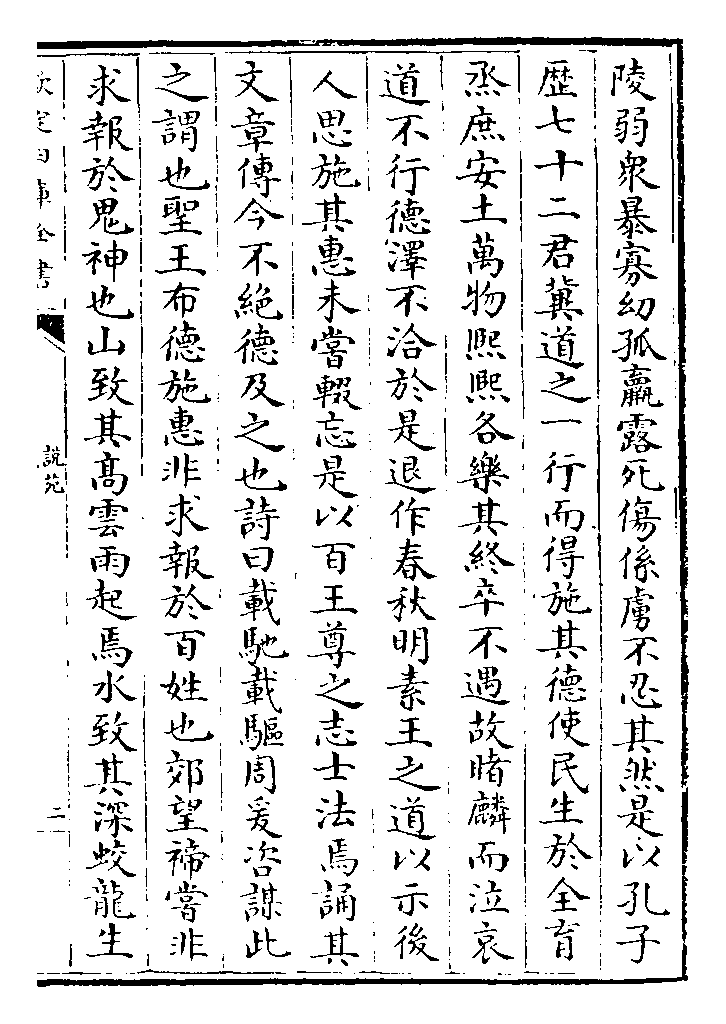 陵弱衆暴寡幼孤羸露死傷係虜不忍其然是以孔子
歴七十二君兾道之一行而得施其德使民生於全育
烝庶安土萬物熈熈各樂其終卒不遇故睹麟而泣哀
道不行德澤不洽於是退作春秋明素王之道以示後
人思施其惠未嘗輟忘是以百王尊之志士法焉誦其
文章傳今不絶德及之也詩曰載馳載驅周爰咨謀此
之謂也聖王布德施惠非求報於百姓也郊望禘嘗非
求報於鬼神也山致其髙雲雨起焉水致其深蛟龍生
欽定四庫全書
說苑
二